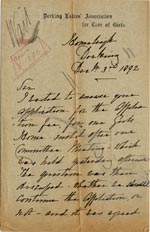 Dorking Ladies' Association
for Care of Girls.
Dorking
Dec 3rd 1892
Sir
I to answer your
application for the
fee for our Girls
Home until after our
Committee Meeting which
was held yesterday
The question was then
discussed whether we should
continue the application or
not - and it was agreed